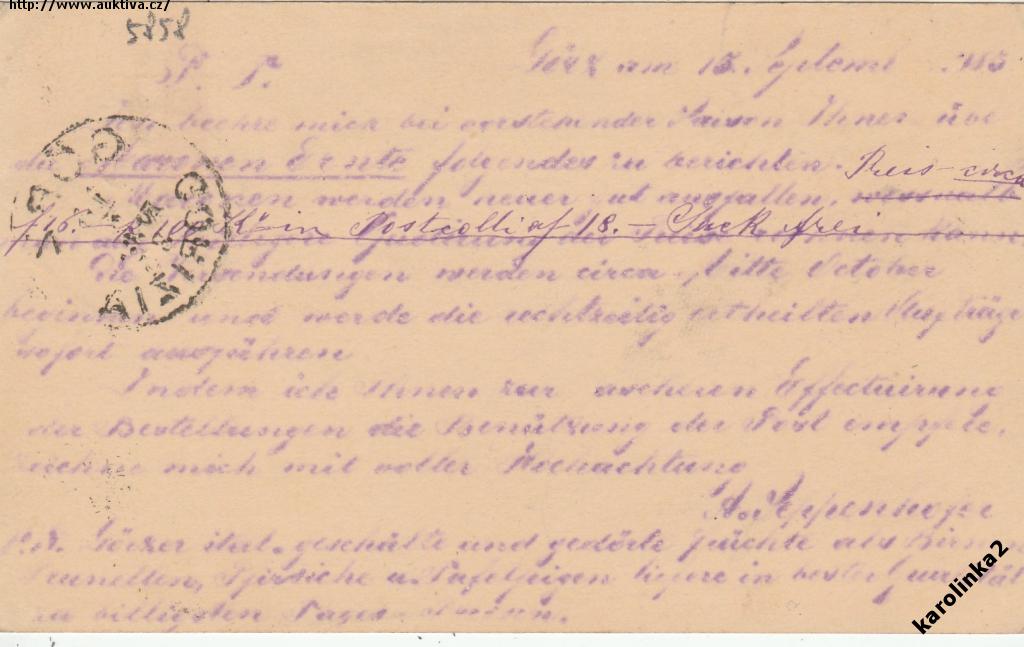 http://www.auktiva.cz/
5858
P. T.
Görz am 15. Septemb 885
beehre mich bei vorstehender Saison Ihnen über
die Maronen Ernte folgendes zu berichten. Preis circa
Maronen werden heuer gut ausfallen,
in Postcolli af 18.— Sack frei
Die Versendungen werden circa Mitte October
beginnen und werde die rechtzeitig ertheilten Aufträge
sofort ausführen
Indem ich Ihnen zur rascheren Effectuirung
der Bestellungen die Benützung der Post empfele,
zeichne mich mit voller Hochachtung
A. Seppenhofer
P.S. Görzer ital. geschälte und gedörte Früchte als Birnen
Prunellen, Pfirsiche u. Tafelfeigen ligere in bester Qualität
zu billigsten Tages
GÖRZ
GORIZIA
karolinka2